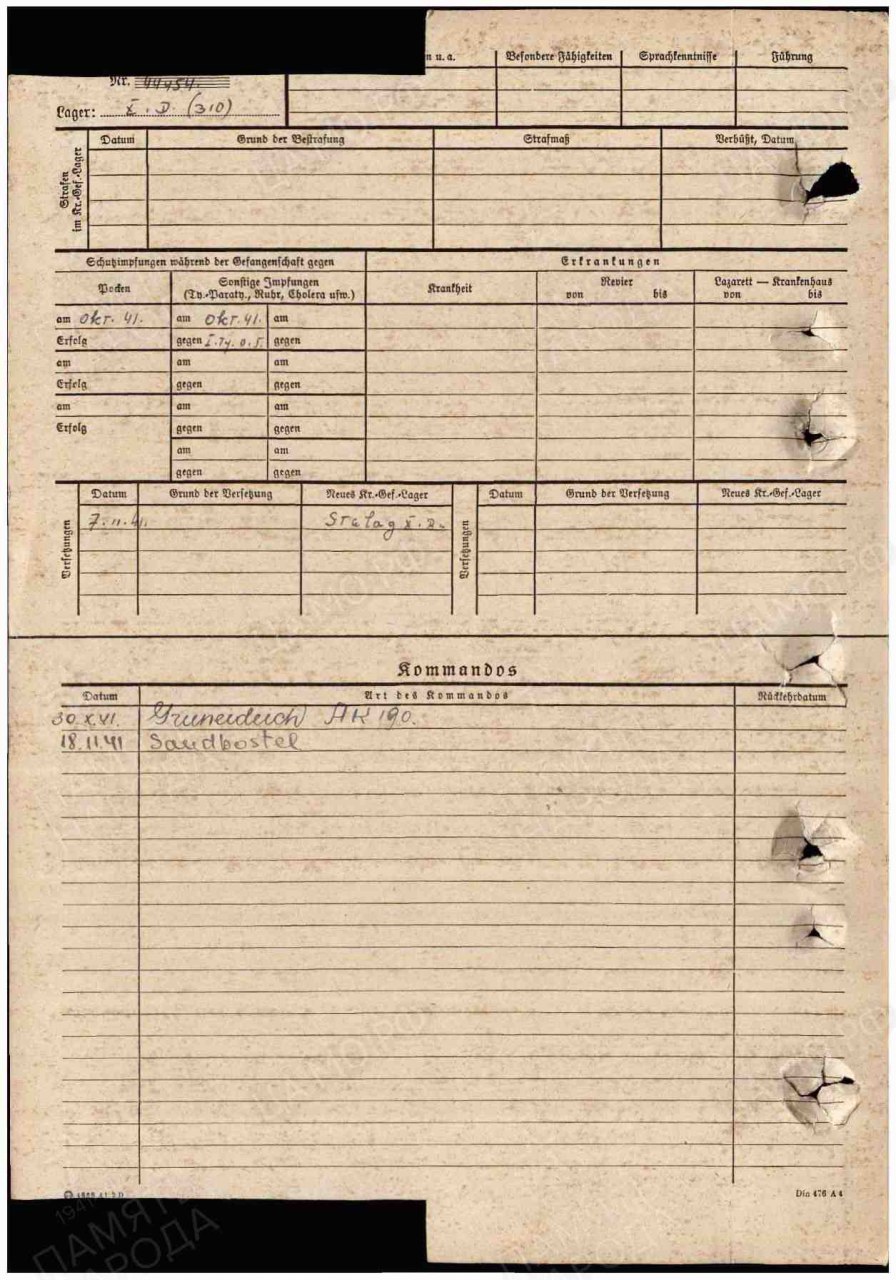 n u. a. Besondere Fähigkeiten Sprachkenntnisse Führung
Nr.
Lager: X. D. (310)
Strafen im Kr.-Gef.-Lager
Datum Grund der Bestrafung Strafmaß Verbüßt, Datum
Schutzimpfungen während der Gefangenschaft gegen Erkrankungen
Pocken Sonstige Impfungen Krankheit Revier Lazarett — Krankenhaus
(Ty.-Paraty., Ruhr, Cholera usw.) von bis von bis
am Okt. 41. am Okt. 41. am
Erfolg gegen gegen
am am am
Erfolg gegen gegen
am am am
Erfolg gegen gegen
am am
gegen gegen
Versetzungen
Datum Grund der Versetzung Neues Kr.-Gef.-Lager
7.11.41. Stalag X. D.
Versetzungen
Datum Grund der Versetzung Neues Kr.-Gef.-Lager
Kommandos
Datum Art des Kommandos Rückkehrdatum
AK 190.
18.11.41 Sandbostel
Din 476 A 4
ПАМЯТЬ
НАРОДА
ЦАМО.РФ